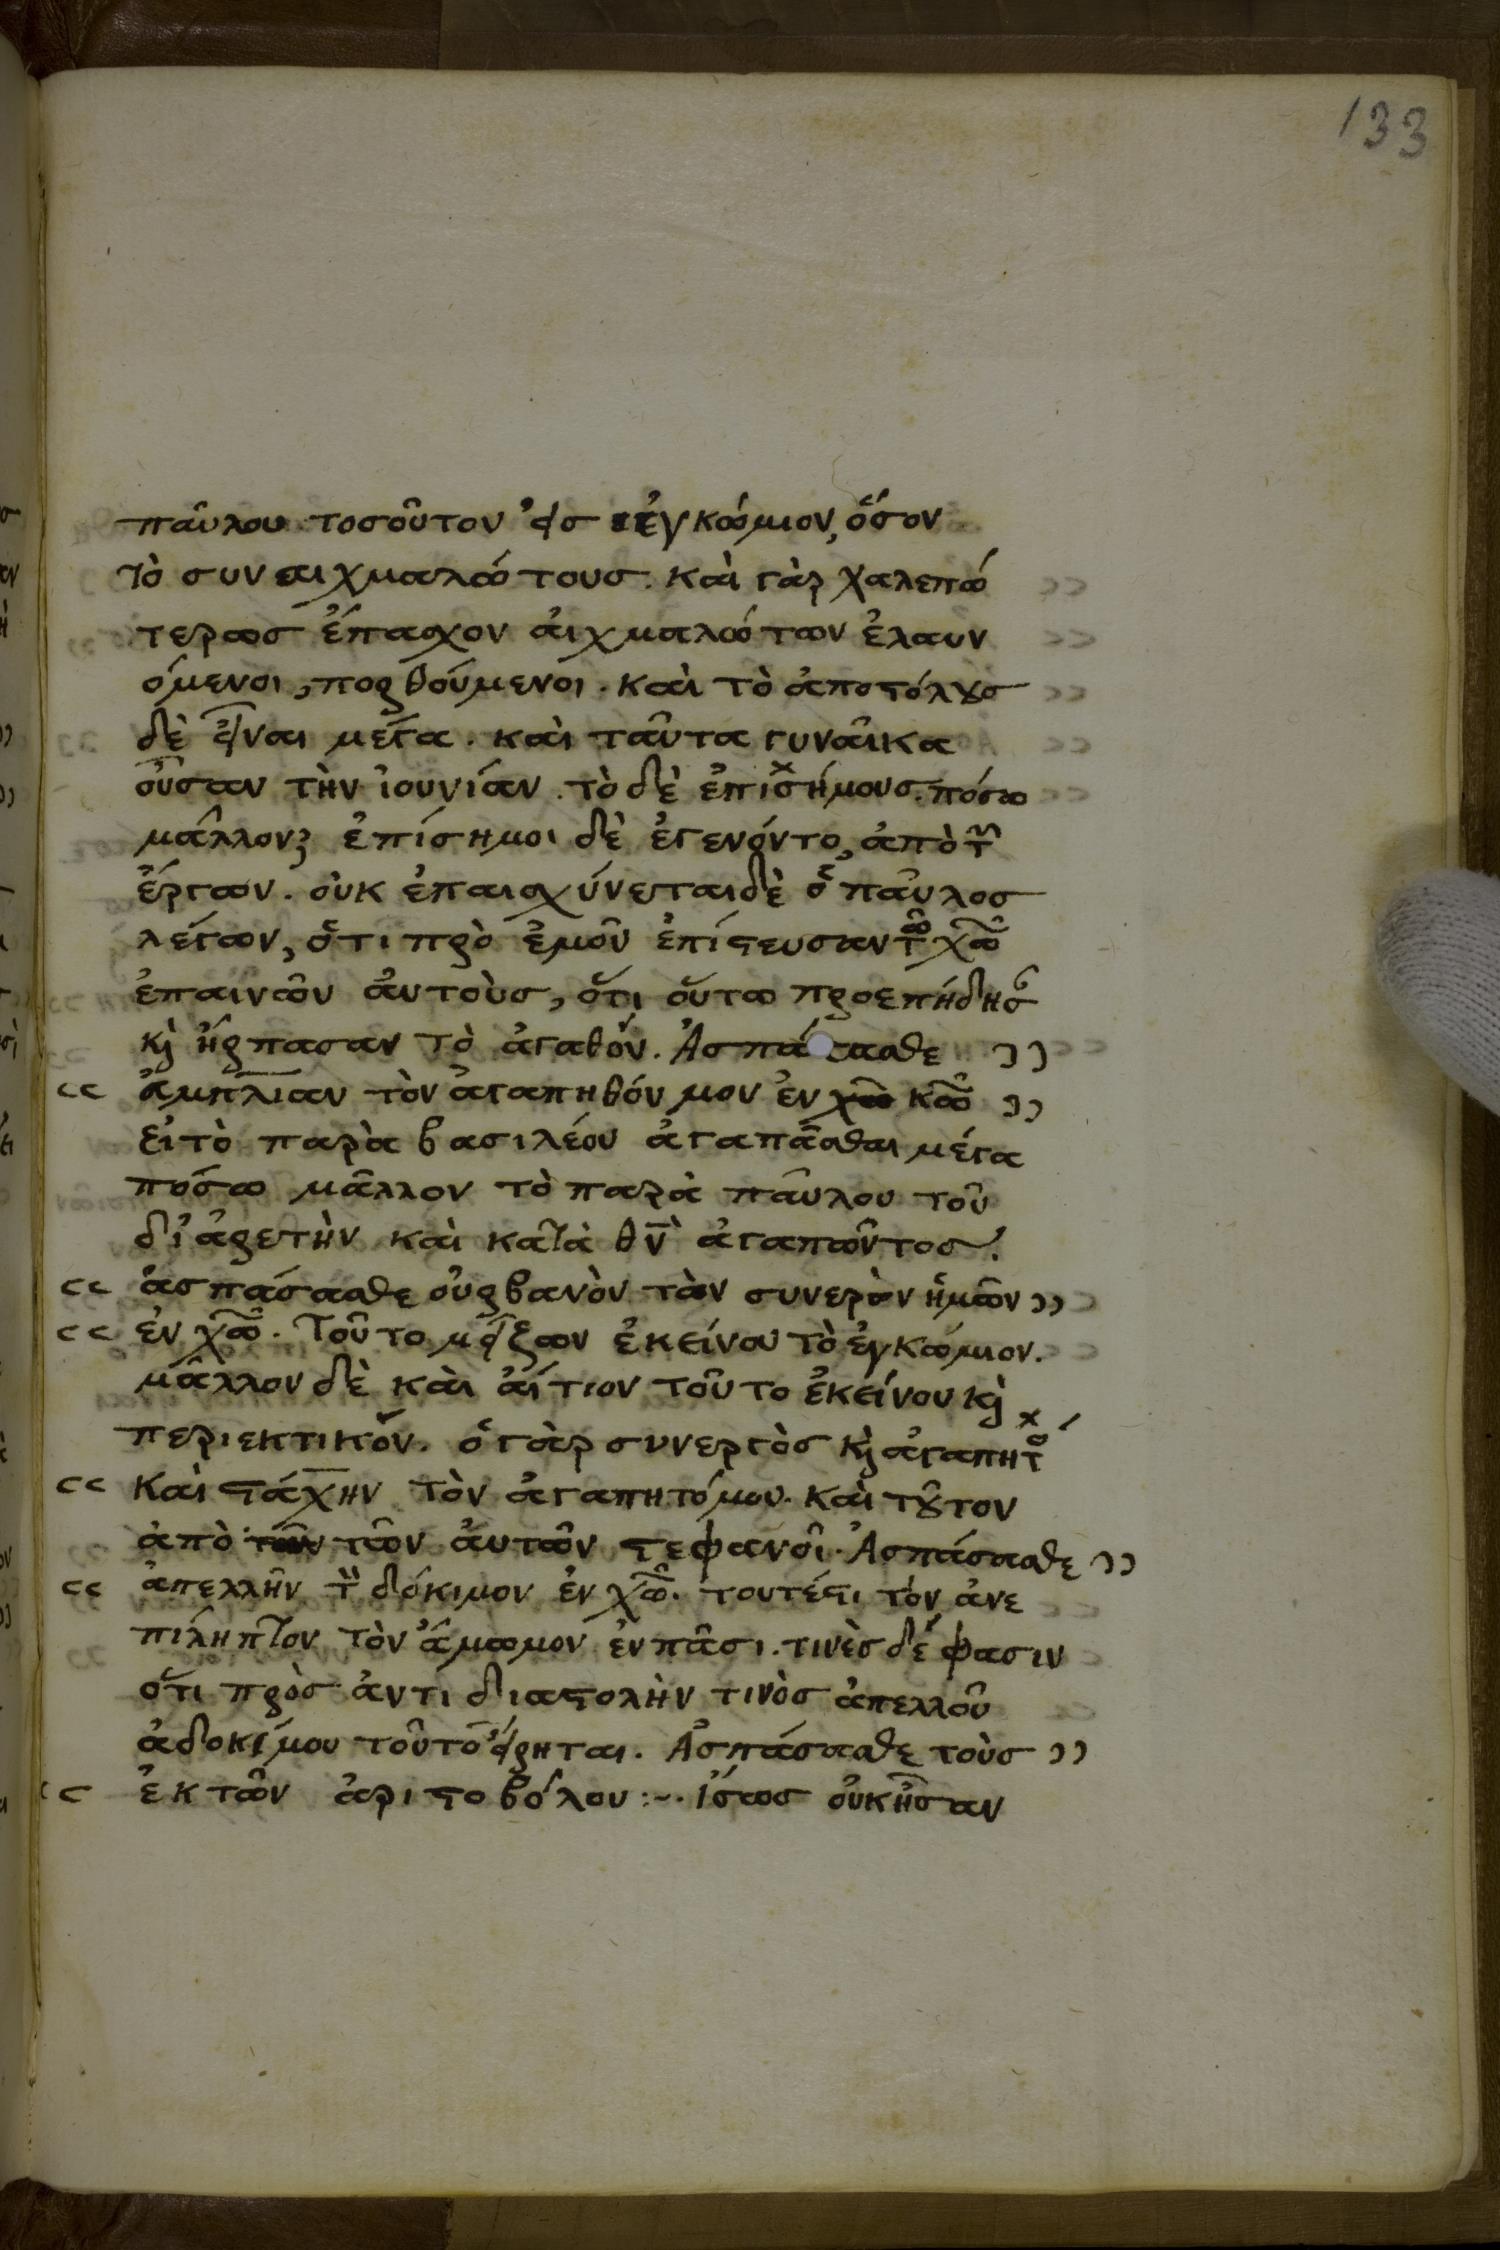 133
παύλου τοσοῦτον εἰς ἐγκώμιον, ὅσον
τὸ συναιχμαλώτους. καὶ γὰρ χαλεπω
τέρως ἔπασχον αἰχμαλώτων ἐλαυν
όμενοι, πορθούμενοι. καὶ τὸ ἀποστόλους
δὲ εἶναι μέγα. καὶ ταῦτα γυναῖκα
οὖσαν τὴν ἰουνίαν. τὸ δὲ ἐπισήμους. πόσω
μᾶλλον; ἐπίσημοι δὲ ἐγενόντο, ἀπὸ τῶν
ἔργων. οὐκ ἐπαισχύνεται δὲ ὁ παῦλος
λέγων, ὅτι πρὸ ἐμοῦ ἐπίστευσαν τῶ χῶ
ἐπαινῶν αὐτοὺς, ὅτι οὕτω προεπήδησ
κὶ ἥρπασαν τὸ ἀγαθόν. Ἀσπάσασθε ))
(( ἀμπλίαν τὸν ἀγαπηθόν μου ἐν κῶ ))
εἰ τὸ παρὰ βασιλέου ἀγαπᾶσθαι μέγα
πόσω μᾶλλον τὸ παρὰ παύλου τοῦ
δι ἀρετὴν καὶ κατὰ θν ἀγαπῶντος.
(( ἀσπάσασθε οὐρβανὸν τὸν συνεργὸν ἡμῶν ))
(( ἐν χῶ. Τοῦτο μεῖζων ἐκείνου τὸ ἐγκώμιον.
μᾶλλον δὲ καὶ αἴτιον τοῦτο ἐκείνου κὶ
περιεκτικόν. ὁ γὰρ συνεργὸς κὶ ἀγαπητ
(( καὶ στάχην τὸν ἀγαπητόμου. καὶ τοῦτον
ἀπὸ τῶν αὐτῶν στεφανοῖ. Ἀσπάσασθε ))
(( ἀπελλῆν τὸν δόκιμον ἐν χῶ. τουτέστι τὸν ἀνε
πίληπτον τὸν ἄμωμον ἐν πᾶσι. τινὲς δέ φασιν
ὅτι πρὸς ἀντιδιαστολὴν τινὸς ἀπελλοῦ
ἀδοκίμου τοῦτο εἴρηται. Ἀσπάσασθε τοὺς ))
(( ἐκ τῶν ἀριστοβόλου :~. Ἴσως οὐκ ἦσαν